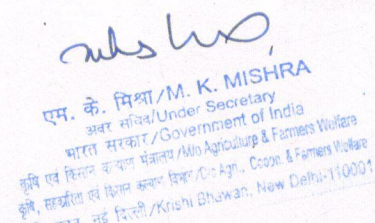 एम. के. मिश्रा/M. K. MISHRA
अवर सचिव/Under Secretary
भारत सरकार/Government of India
कृषि एवं किसान कल्याण मंत्रालय/M/o Agriculture & Farmers Welfare
कृषि, सहकारिता एवं किसान कल्याण विभाग/D/o Agri., Coopn. & Farmers Welfare
नई दिल्ली/Krishi Bhawan, New Delhi-110001